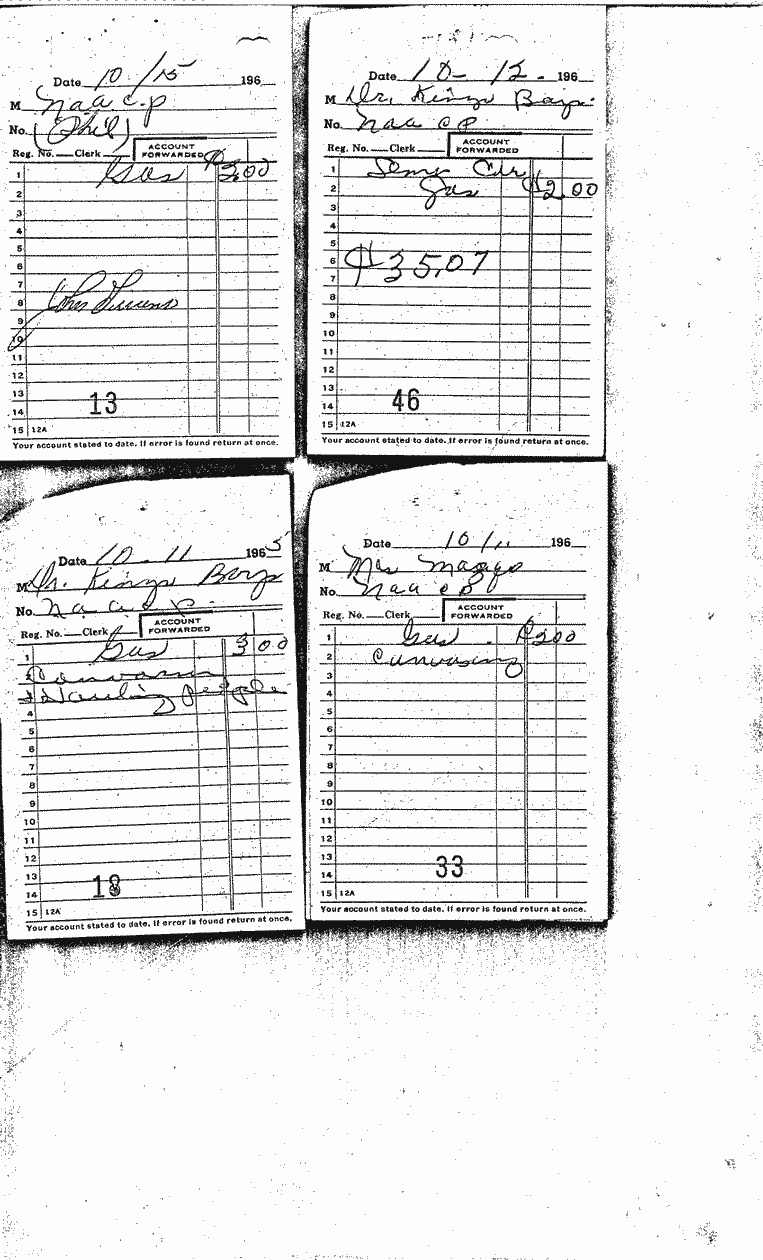 Date 10/15 196
M Naacp
No. (Phil)
Reg. No. Clerk ACCOUNT FORWARDED
1 Gas $3.00
2
3
4
5
6
7
8
9
10
11
12
13
14
13
15 12A
Your account stated to date. If error is found return at once.
Date 10-12- 196
M Dr. Kings Boys
No. Naacp
Reg. No. Clerk ACCOUNT FORWARDED
1
2 Gas $2.00
3
4
5
6 $35.07
7
8
9
10
11
12
13
14 46
15 12A
Your account stated to date. If error is found return at once.
Date 10-11 1965
M Dr. Kings Boys
No. Naacp.
Reg. No. Clerk ACCOUNT FORWARDED
1 Gas 3 00
+ Hauling People
4
5
6
7
8
9
10
11
12
13
14 18
15 12A
Your account stated to date. If error is found return at once.
Date 10/11 196
M Mrs Maggo
No. Naacp
Reg. No. Clerk ACCOUNT FORWARDED
1 Gas $2 00
2 Canvasing
3
4
5
6
7
8
9
10
11
12
13
14 33
15 12A
Your account stated to date. If error is found return at once.